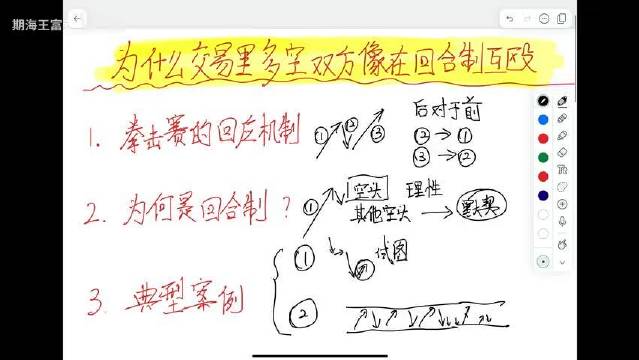 期海王富
为什么交易里多空双方像在回合制互殴
1. 拳击赛的回应机制 ① ② ③
后对于前
② → ①
③ → ②
2. 为何是回合制？ ① 空头 理性
其他空头 → 默契
3. 典型案例
① 试图
②